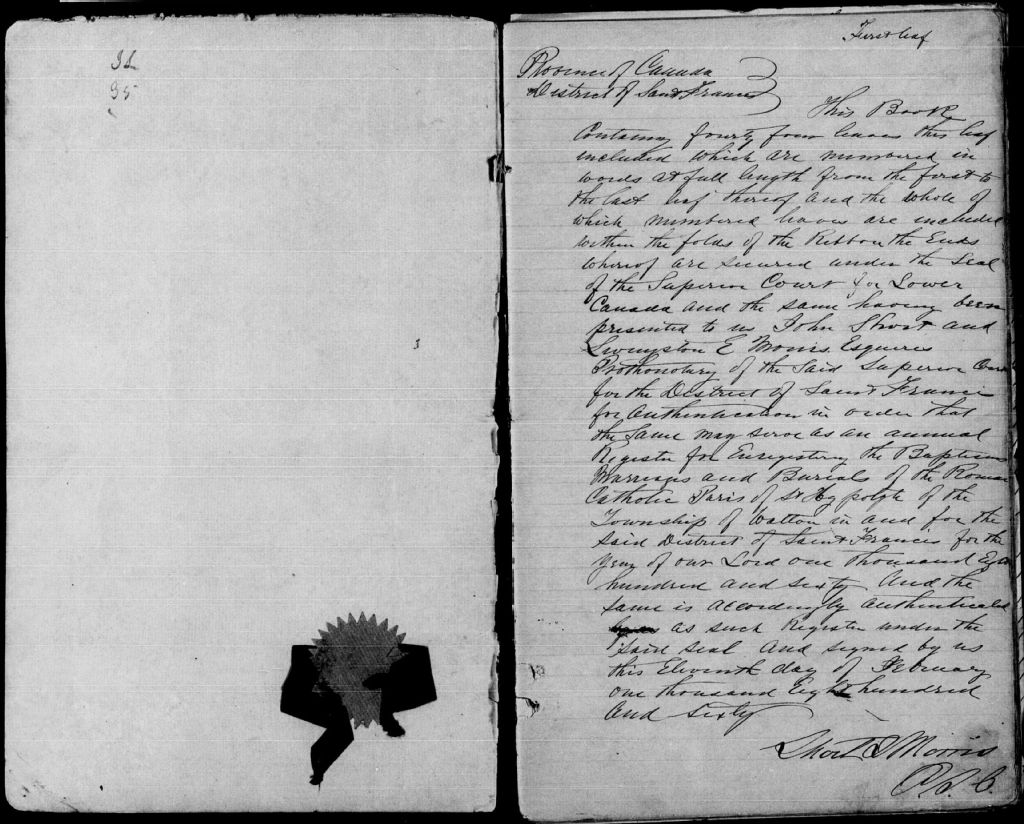 First leaf
Province of Canada
District of Saint Francis
This Book
Containing fourty four leaves this leaf
included which are numbered in
words at full length from the first to
the last leaf thereof and the whole of
which numbered leaves are included
within the folds of the Ribbon the Ends
whereof are secured under the Seal
of the Superior Court for Lower
Canada and the same having been
presented to us John Short and
Livingston E Morris Esquires
Prothonotary of the Said Superior Court
for the District of Saint Francis
for authentication in order that
the same may serve as an annual
Register for Enregistering the Baptisms
Marriages and Burials of the Roman
Catholic Paris of St Hypolyte of the
Township of Wotton in and for the
said District of Saint Francis for the
year of our Lord one thousand Eight
hundred and sixty And the
same is accordingly authenticated
as such Register under the
said seal and signed by us
this Eleventh day of February
one thousand Eight hundred
and sixty
Short & Morris
P.S.C.